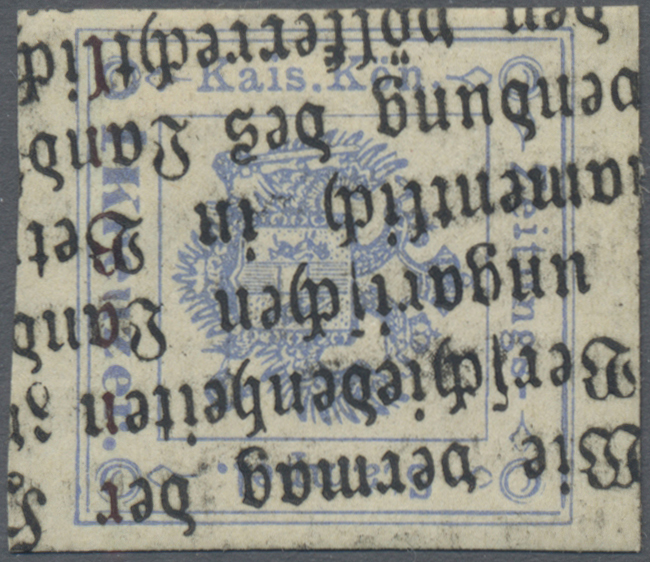 Kais. Kön.
Zeitungs-
1 Kreuzer.
Wie vermag der
Verschiedenheiten in
ungarischen Land
amentlich in Bet
endung des Land
den völkerrechtlich